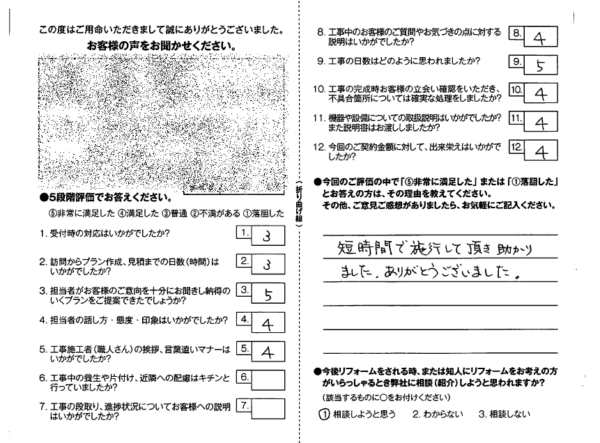 この度はご用命いただきまして誠にありがとうございました。
お客様の声をお聞かせください。
●5段階評価でお答えください。
⑤非常に満足した ④満足した ③普通 ②不満がある ①落胆した
1. 受付時の対応はいかがでしたか? 1. 3
2. 訪問からプラン作成、見積までの日数(時間)は
いかがでしたか? 2. 3
3. 担当者がお客様のご意向を十分にお聞きし納得の
いくプランをご提案できたでしょうか? 3. 5
4. 担当者の話し方・態度・印象はいかがでしたか? 4. 4
5. 工事施工者(職人さん)の挨拶、言葉遣いマナーは
いかがでしたか? 5. 4
6. 工事中の養生や片付け、近隣への配慮はキチンと
行っていましたか? 6.
7. 工事の段取り、進捗状況についてお客様への説明
はいかがでしたか? 7.
(折り曲げ線)
8. 工事中のお客様のご質問やお気づきの点に対する
説明はいかがでしたか? 8. 4
9. 工事の日数はどのように思われましたか? 9. 5
10. 工事の完成時お客様の立会い確認をいただき、
不具合箇所については確実な処理をしましたか? 10. 4
11. 機器や設備についての取扱説明はいかがでしたか?
また説明書はお渡ししましたか? 11. 4
12. 今回のご契約金額に対して、出来栄えはいかがで
したか? 12. 4
●今回のご評価の中で「⑤非常に満足した」または「①落胆した」
とお答えの方は、その理由を教えてください。
その他、ご意見ご感想がありましたら、お気軽にご記入ください。
短時間で施行して頂き助かり
ました。ありがとうございました。
●今後リフォームをされる時、または知人にリフォームをお考えの方
がいらっしゃるとき弊社に相談(紹介)しようと思われますか?
(該当するものに○をお付けください)
① 相談しようと思う 2. わからない 3. 相談しない